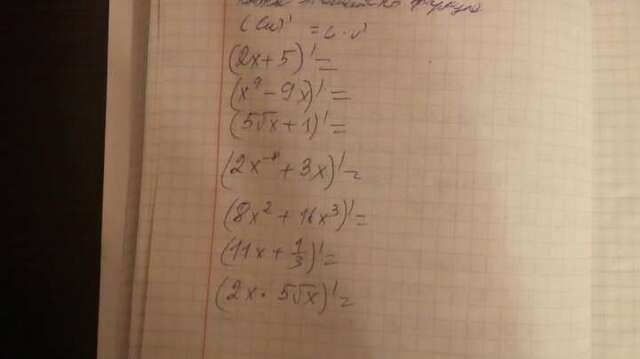 (Cu)' = C · u'
(2x + 5)' =
(x⁹ - 9x)' =
(5√x + 1)' =
(2x⁻⁸ + 3x)' =
(8x² + 16x³)' =
(11x + 1/3)' =
(2x · 5√x)' =